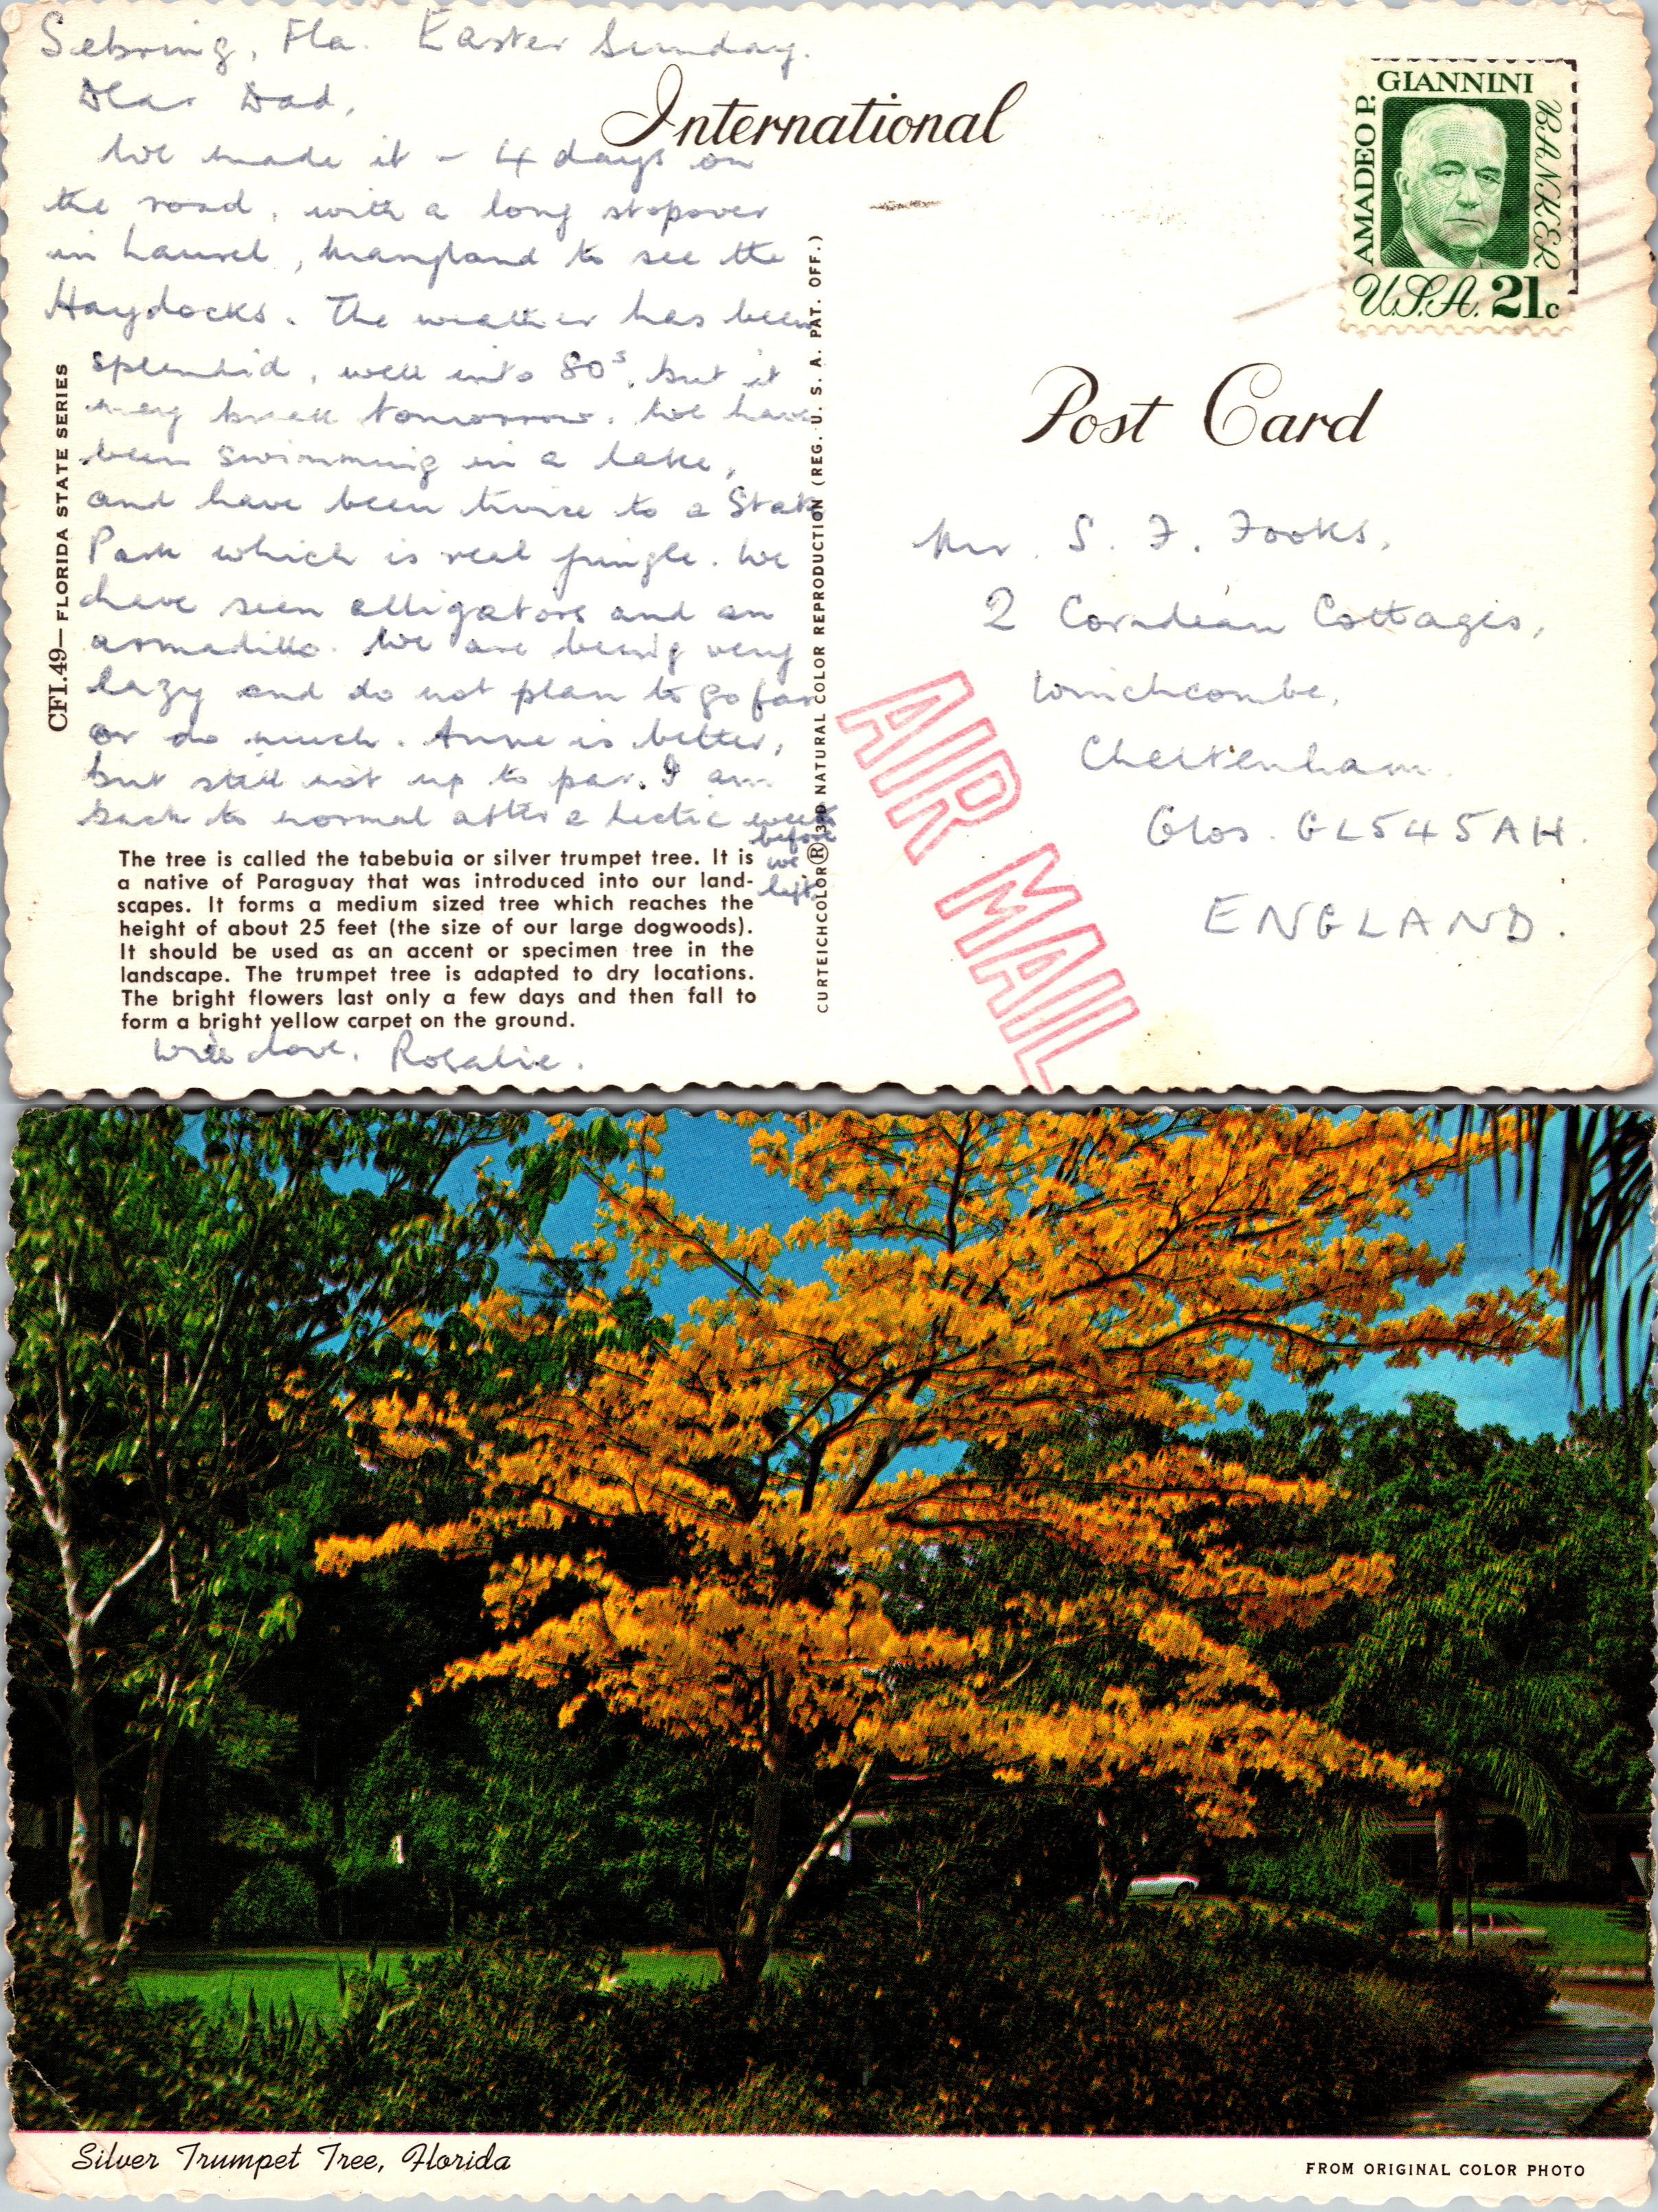 Sebring, Fla. Easter Sunday.
Dear Dad,
We made it - 4 days on
the road, with a long stopover
in Laurel, Maryland to see the
Haydocks. The weather has been
splendid, well into 80s, but it
may break tomorrow. We have
been swimming in a lake,
and have been twice to a State
Park which is real jungle. We
have seen alligators and an
armadillo. We are being very
lazy and do not plan to go far
or do much. Anne is better,
but still not up to par. I am
back to normal after a hectic week
before
we
left.
The tree is called the tabebuia or silver trumpet tree. It is
a native of Paraguay that was introduced into our land-
scapes. It forms a medium sized tree which reaches the
height of about 25 feet (the size of our large dogwoods).
It should be used as an accent or specimen tree in the
landscape. The trumpet tree is adapted to dry locations.
The bright flowers last only a few days and then fall to
form a bright yellow carpet on the ground.
With love, Rosalie.
CFI.49—FLORIDA STATE SERIES
CURTEICHCOLOR® 3-D NATURAL COLOR REPRODUCTION (REG. U. S. A. PAT. OFF.)
International
Post Card
AMADEO P. GIANNINI
BANKER
U.S.A. 21c
Mr. S. F. Fooks,
2 Corndean Cottages,
Winchcombe,
Cheltenham.
Glos. GL545AH.
ENGLAND.
AIR MAIL
Silver Trumpet Tree, Florida
FROM ORIGINAL COLOR PHOTO